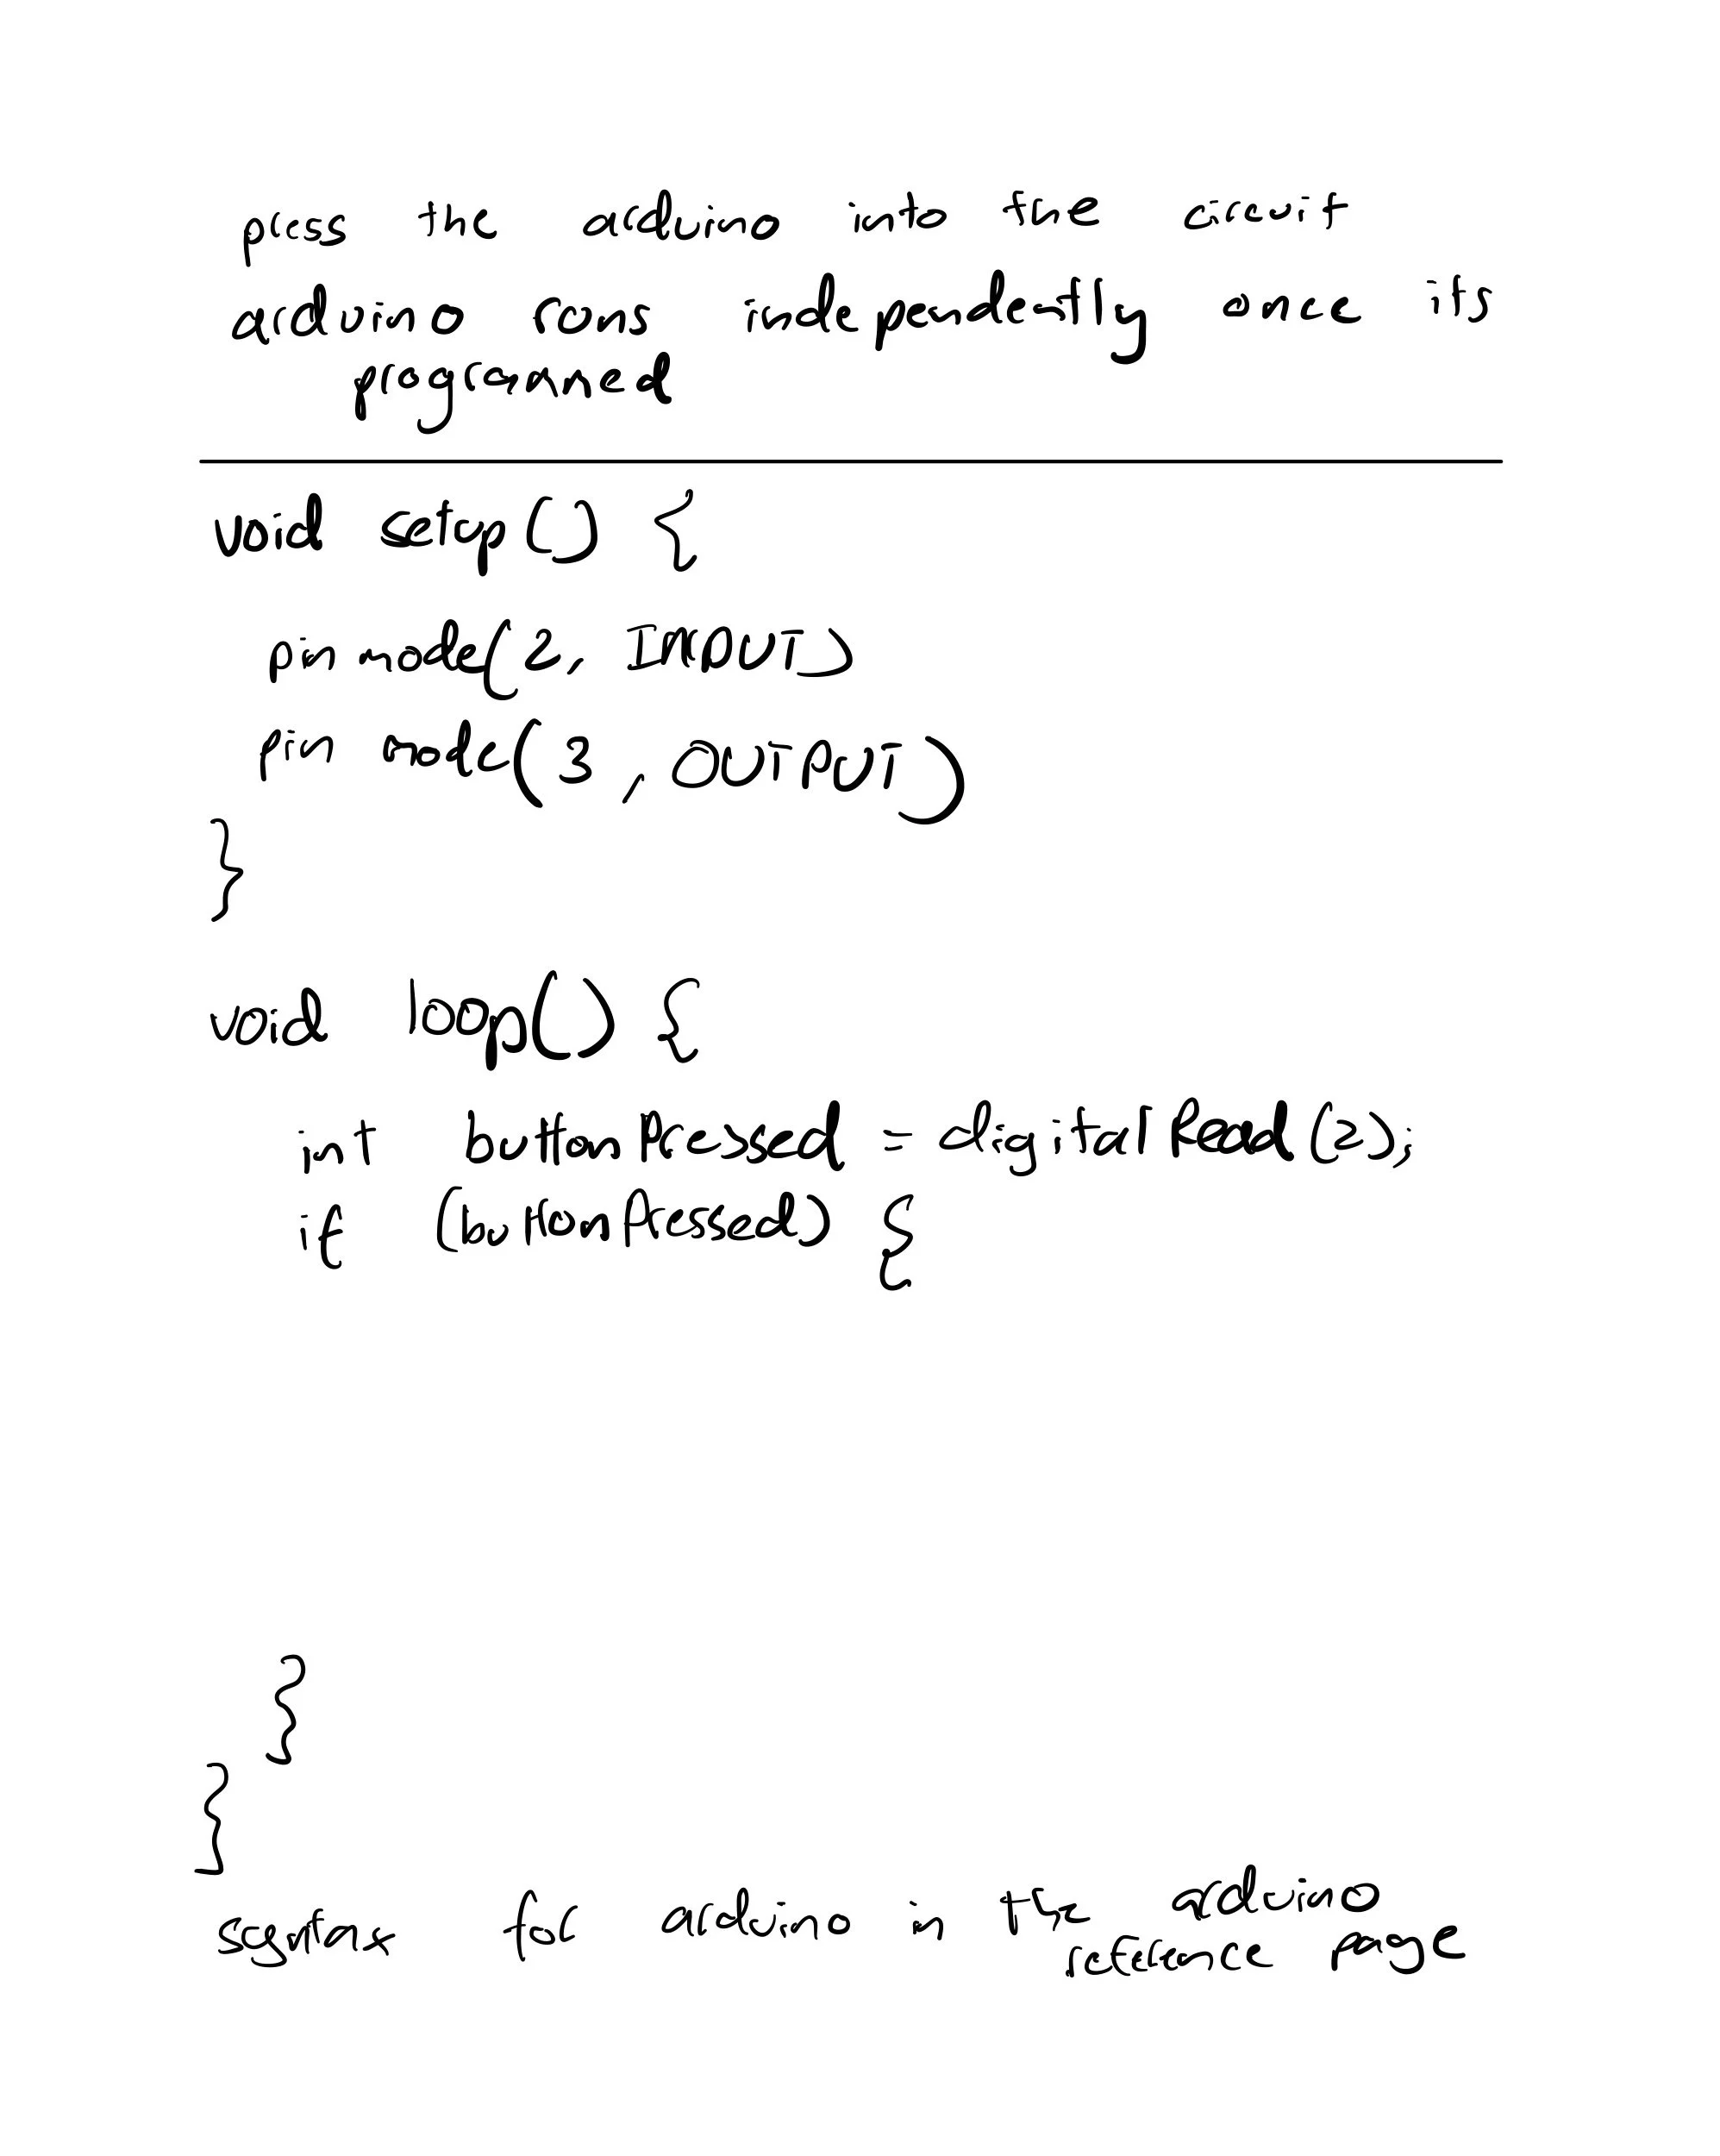 press the arduino into the circuit
arduino runs independently once its
programmed
void setup() {
pin mode(2, INPUT)
pin mode(3, OUTPUT)
}
void loop() {
int buttonPressed = digitalRead(2);
if (buttonPressed) {
}
}
syntax for arduino in the arduino
reference page